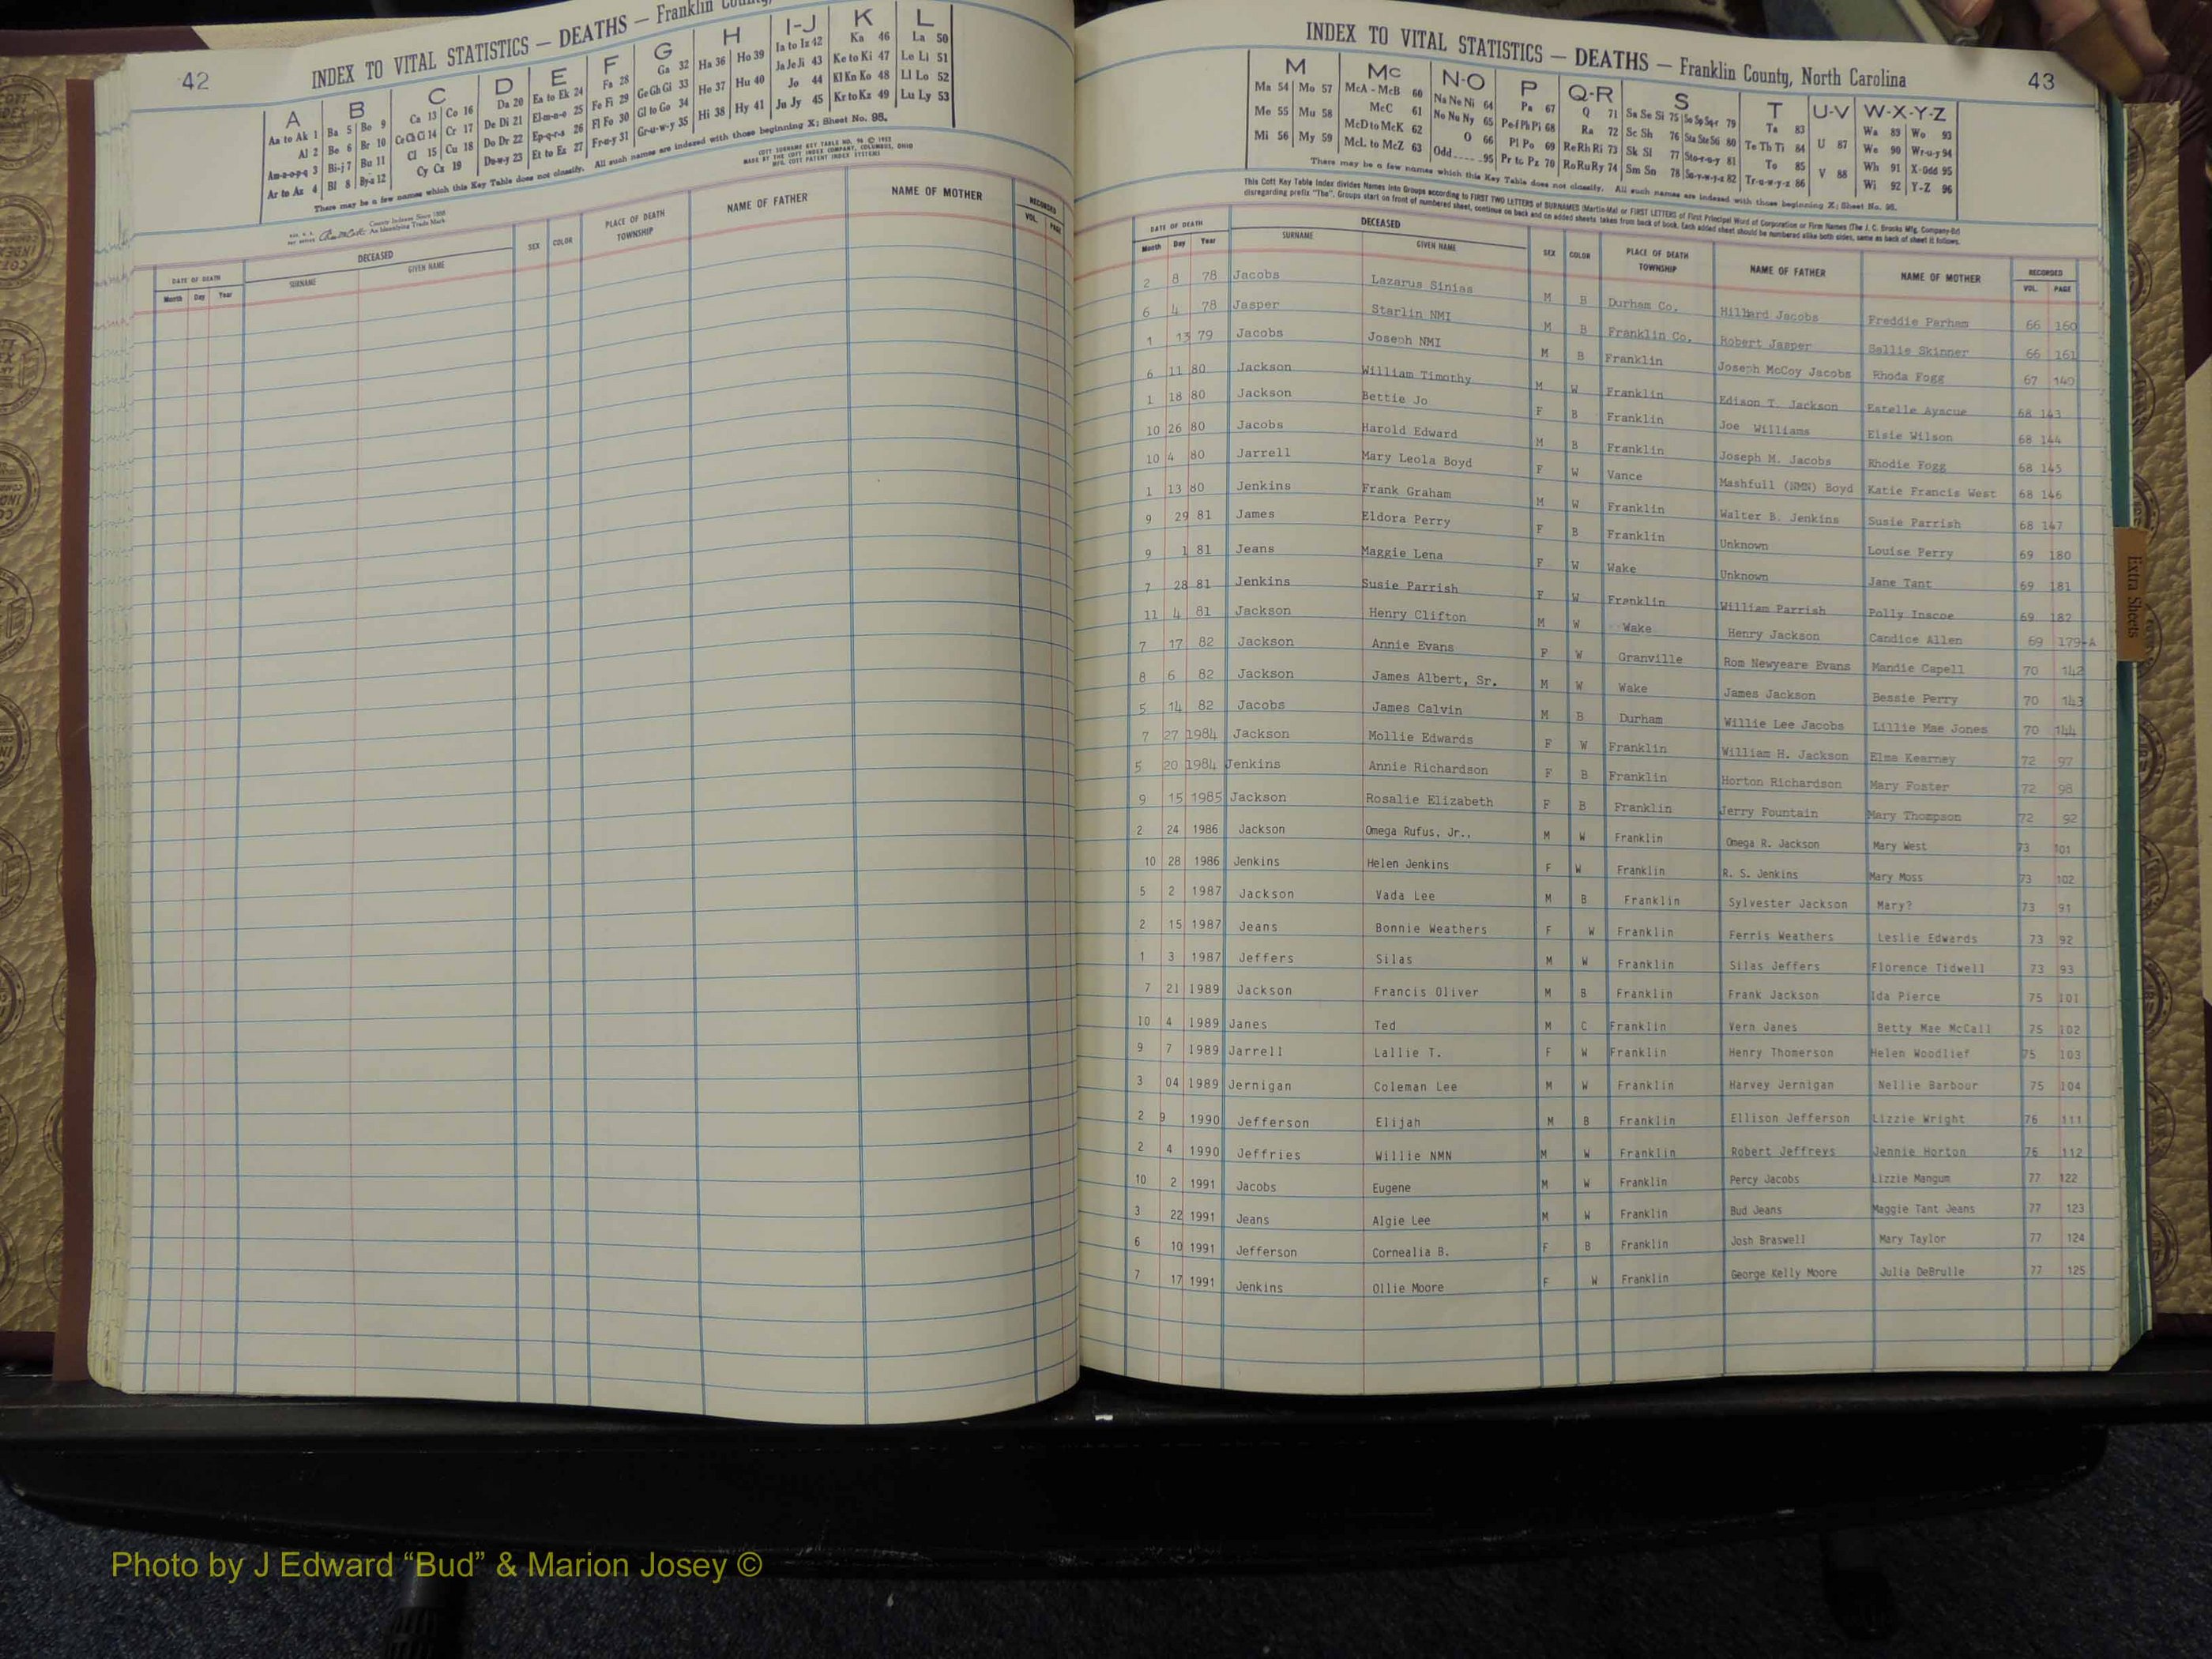 42
INDEX TO VITAL STATISTICS — DEATHS — Franklin County,
A B C D E F G H I-J K L
Aa to Ak 1 Ba 5 Bo 9 Ca 13 Co 16 Da 20 Ea to Ek 24 Fa 28 Ga 32 Ha 36 Ho 39 Ia to Iz 42 Ka 46 La 50
Al 2 Be 6 Br 10 Ce Ch Ci 14 Cr 17 De Di 21 El-m-n-o 25 Fe Fi 29 Ge Gh Gi 33 He 37 Hu 40 Ja Je Ji 43 Ke to Ki 47 Le Li 51
Am-n-o-p-q 3 Bi-j 7 Bu 11 Cl 15 Cu 18 Do Dr 22 Ep-q-r-s 26 Fl Fo 30 Gl to Go 34 Hi 38 Hy 41 Jo 44 Kl Kn Ko 48 Ll Lo 52
Ar to Az 4 Bl 8 By-z 12 Cy Cz 19 Du-w-y 23 Et to Ez 27 Fr-u-y 31 Gr-u-w-y 35 Ju Jy 45 Kr to Kz 49 Lu Ly 53
There may be a few names which this Key Table does not classify. All such names are indexed with those beginning X; Sheet No. 95.
COTT SURNAME KEY TABLE NO. 96 © 1952
MADE BY THE COTT INDEX COMPANY, COLUMBUS, OHIO
MFG. COTT PATENT INDEX SYSTEMS
County Indexes Since 1888
An Identifying Trade Mark
DATE OF DEATH DECEASED SEX COLOR PLACE OF DEATH NAME OF FATHER NAME OF MOTHER RECORDED
Month Day Year SURNAME GIVEN NAME TOWNSHIP VOL. PAGE
INDEX TO VITAL STATISTICS — DEATHS — Franklin County, North Carolina 43
M Mc N-O P Q-R S T U-V W-X-Y-Z
Ma 54 Mo 57 McA - McB 60 Na Ne Ni 64 Pa 67 Q 71 Sa Se Si 75 So Sp Sq-r 79 Ta 83 U 87 Wa 89 Wo 93
Me 55 Mu 58 McC 61 No Nu Ny 65 Pe-f Ph Pi 68 Ra 72 Sc Sh 76 Sta Ste Sti 80 Te Th Ti 84 V 88 We 90 Wr-u-y 94
Mi 56 My 59 McD to McK 62 O 66 Pl Po 69 Re Rh Ri 73 Sk Sl 77 Sto-r-u-y 81 To 85 Wh 91 X-Odd 95
McL to McZ 63 Odd 95 Pr to Pz 70 Ro Ru Ry 74 Sm Sn 78 Su-v-w-y-z 82 Tr-u-w-y-z 86 Wi 92 Y-Z 96
There may be a few names which this Key Table does not classify. All such names are indexed with those beginning X; Sheet No. 95.
This Cott Key Table Index divides Names into Groups according to FIRST TWO LETTERS of SURNAMES (Martin-Ma) or FIRST LETTERS of First Principal Word of Corporation or Firm Names (The J. C. Brooks Mfg. Company-Br)
disregarding prefix "The". Groups start on front of numbered sheet, continue on back and on added sheets taken from back of book. Each added sheet should be numbered alike both sides, same as back of sheet it follows.
DATE OF DEATH DECEASED SEX COLOR PLACE OF DEATH NAME OF FATHER NAME OF MOTHER RECORDED
Month Day Year SURNAME GIVEN NAME TOWNSHIP VOL. PAGE
2 8 78 Jacobs Lazarus Sinias M B Durham Co. Hilliard Jacobs Freddie Parham 66 160
6 4 78 Jasper Starlin NMI M B Franklin Co. Robert Jasper Sallie Skinner 66 161
1 13 79 Jacobs Joseph NMI M B Franklin Joseph McCoy Jacobs Rhoda Fogg 67 140
6 11 80 Jackson William Timothy M W Franklin Edison T. Jackson Estelle Ayscue 68 143
1 18 80 Jackson Bettie Jo F B Franklin Joe Williams Elsie Wilson 68 144
10 26 80 Jacobs Harold Edward M B Franklin Joseph M. Jacobs Rhodie Fogg 68 145
10 4 80 Jarrell Mary Leola Boyd F W Vance Mashfull (NMN) Boyd Katie Francis West 68 146
1 13 80 Jenkins Frank Graham M W Franklin Walter B. Jenkins Susie Parrish 68 147
9 29 81 James Eldora Perry F B Franklin Unknown Louise Perry 69 180
9 1 81 Jeans Maggie Lena F W Wake Unknown Jane Tant 69 181
7 28 81 Jenkins Susie Parrish F W Franklin William Parrish Polly Inscoe 69 182
11 4 81 Jackson Henry Clifton M W Wake Henry Jackson Candice Allen 69 179-A
7 17 82 Jackson Annie Evans F W Granville Rom Newyeare Evans Mandie Capell 70 142
8 6 82 Jackson James Albert, Sr. M W Wake James Jackson Bessie Perry 70 143
5 14 82 Jacobs James Calvin M B Durham Willie Lee Jacobs Lillie Mae Jones 70 144
7 27 1984 Jackson Mollie Edwards F W Franklin William H. Jackson Elma Kearney 72 97
5 20 1984 Jenkins Annie Richardson F B Franklin Horton Richardson Mary Foster 72 98
9 15 1985 Jackson Rosalie Elizabeth F B Franklin Jerry Fountain Mary Thompson 72 92
2 24 1986 Jackson Omega Rufus, Jr., M W Franklin Omega R. Jackson Mary West 73 101
10 28 1986 Jenkins Helen Jenkins F W Franklin R. S. Jenkins Mary Moss 73 102
5 2 1987 Jackson Vada Lee M B Franklin Sylvester Jackson Mary? 73 91
2 15 1987 Jeans Bonnie Weathers F W Franklin Ferris Weathers Leslie Edwards 73 92
1 3 1987 Jeffers Silas M W Franklin Silas Jeffers Florence Tidwell 73 93
7 21 1989 Jackson Francis Oliver M B Franklin Frank Jackson Ida Pierce 75 101
10 4 1989 Janes Ted M C Franklin Vern Janes Betty Mae McCall 75 102
9 7 1989 Jarrell Lallie T. F W Franklin Henry Thomerson Helen Woodlief 75 103
3 04 1989 Jernigan Coleman Lee M W Franklin Harvey Jernigan Nellie Barbour 75 104
2 9 1990 Jefferson Elijah M B Franklin Ellison Jefferson Lizzie Wright 76 111
2 4 1990 Jeffries Willie NMN M W Franklin Robert Jeffreys Jennie Horton 76 112
10 2 1991 Jacobs Eugene M W Franklin Percy Jacobs Lizzie Mangum 77 122
3 22 1991 Jeans Algie Lee M W Franklin Bud Jeans Maggie Tant Jeans 77 123
6 10 1991 Jefferson Cornealia B. F B Franklin Josh Braswell Mary Taylor 77 124
7 17 1991 Jenkins Ollie Moore F W Franklin George Kelly Moore Julia DeBrulle 77 125
Extra Sheets
Photo by J Edward “Bud” & Marion Josey ©